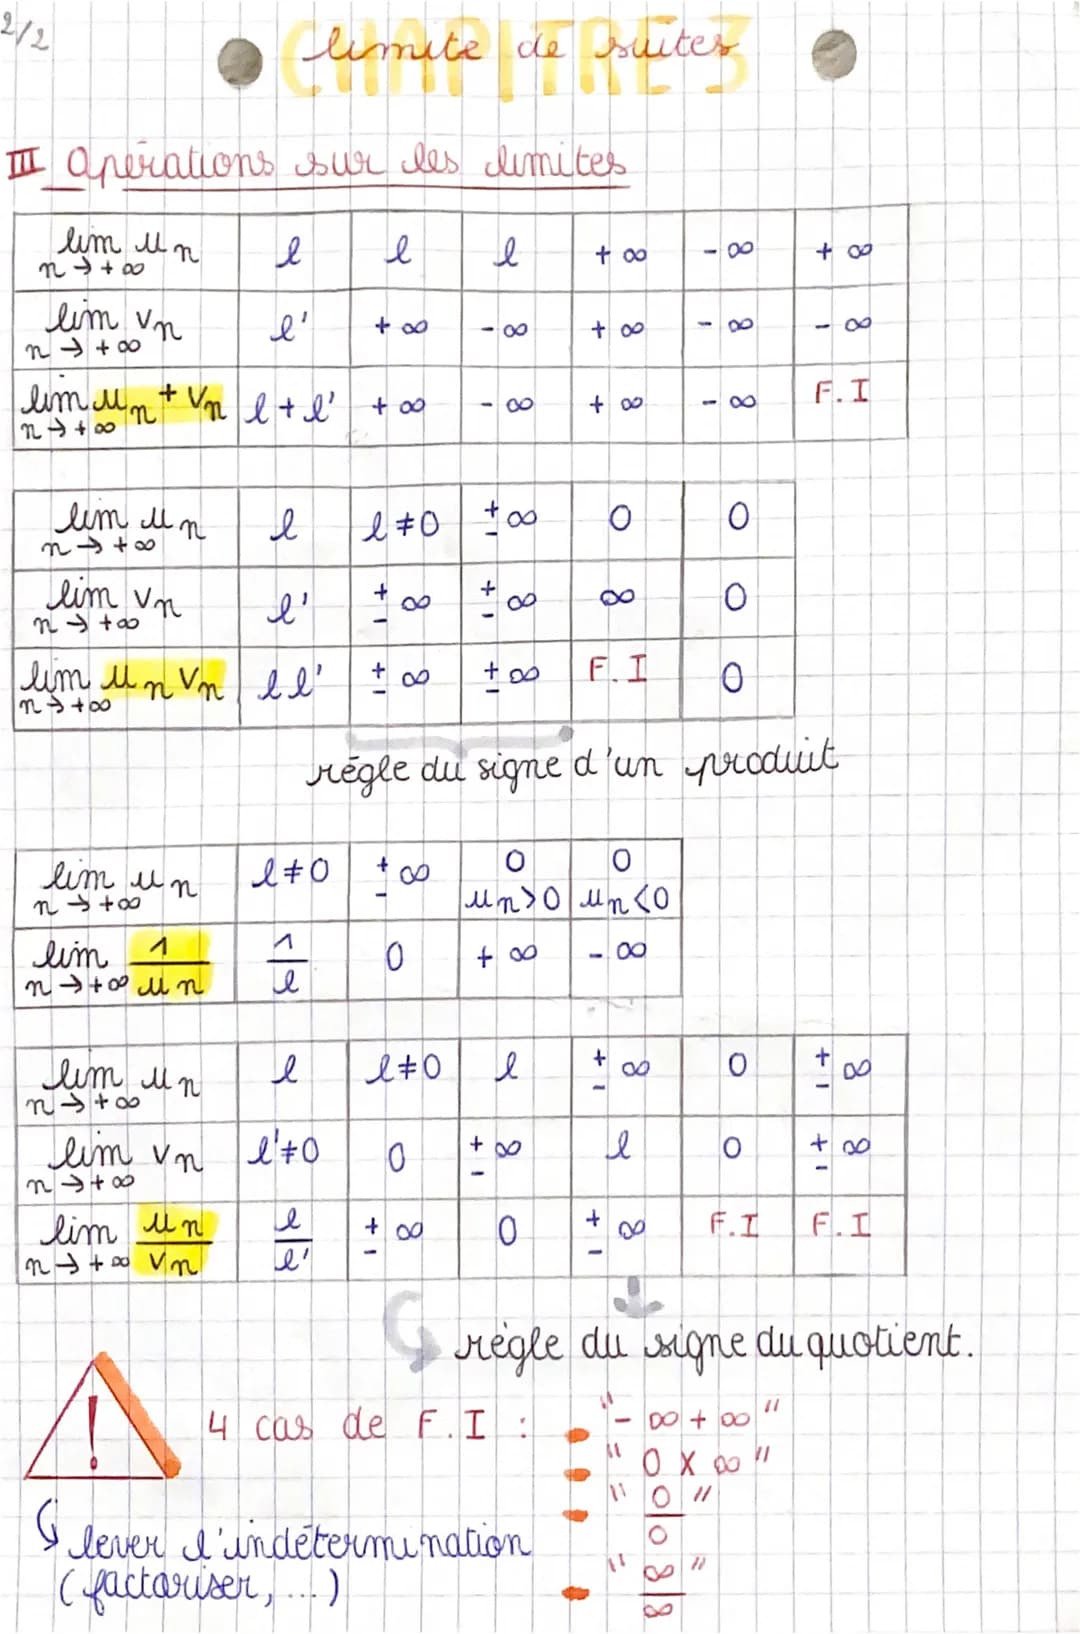 2/2
CHAPITRE 3
limite de suites
III Opérations sur les limites
lim un n→+∞ | l | l | l | +∞ | -∞ | +∞
lim vn n→+∞ | l' | +∞ | -∞ | +∞ | -∞ | -∞
lim un + vn n→+∞ | l+l' | +∞ | -∞ | +∞ | -∞ | F.I
lim un n→+∞ | l | l≠0 | ±∞ | 0 | 0
lim vn n→+∞ | l' | ±∞ | ±∞ | ∞ | 0
lim un vn n→+∞ | ll' | ±∞ | ±∞ | F.I | 0
régle du signe d'un produit
lim un n→+∞ | l≠0 | ±∞ | 0 un>0 | 0 un<0
lim 1/un n→+∞ | 1/l | 0 | +∞ | -∞
lim un n→+∞ | l | l≠0 | l | ±∞ | 0 | ±∞
lim vn n→+∞ | l'≠0 | 0 | ±∞ | l | 0 | ±∞
lim un/vn n→+∞ | l/l' | ±∞ | 0 | ±∞ | F.I | F.I
régle du signe du quotient.
! 4 cas de F.I :
"-∞+∞"
"0 x ∞"
"0/0"
"∞/∞"
lever l'indétermination
(factoriser, ...)